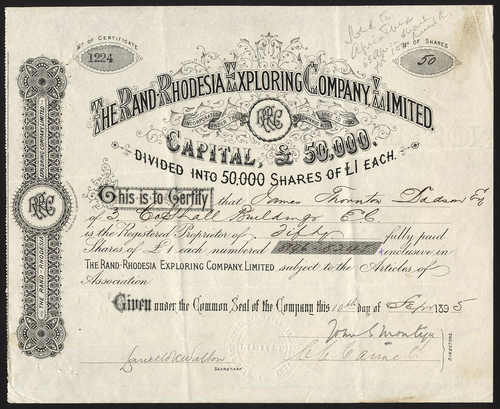 No. OF CERTIFICATE
1224
Sold to
No OF SHARES
50
THE RAND-RHODESIA EXPLORING COMPANY, LIMITED.
INCORPORATED UNDER THE
RREC
CAPITAL, £ 50,000.
DIVIDED INTO 50,000 SHARES OF £1 EACH.
This is to Certify that James Thornton Dadson Esq
of 3 Copthall Buildings E.C
is the Registered Proprietor of Fifty fully paid
Shares of £1 each numbered inclusive in
THE RAND-RHODESIA EXPLORING COMPANY, LIMITED subject to the Articles of
Association
Given under the Common Seal of the Company this 10th day of 1895
John S Montagu
SECRETARY.
DIRECTORS.
THE RAND-RHODESIA
EXPLORING COMPANY, LIMITED
RREC
THE RAND-RHODESIA
LIMITED